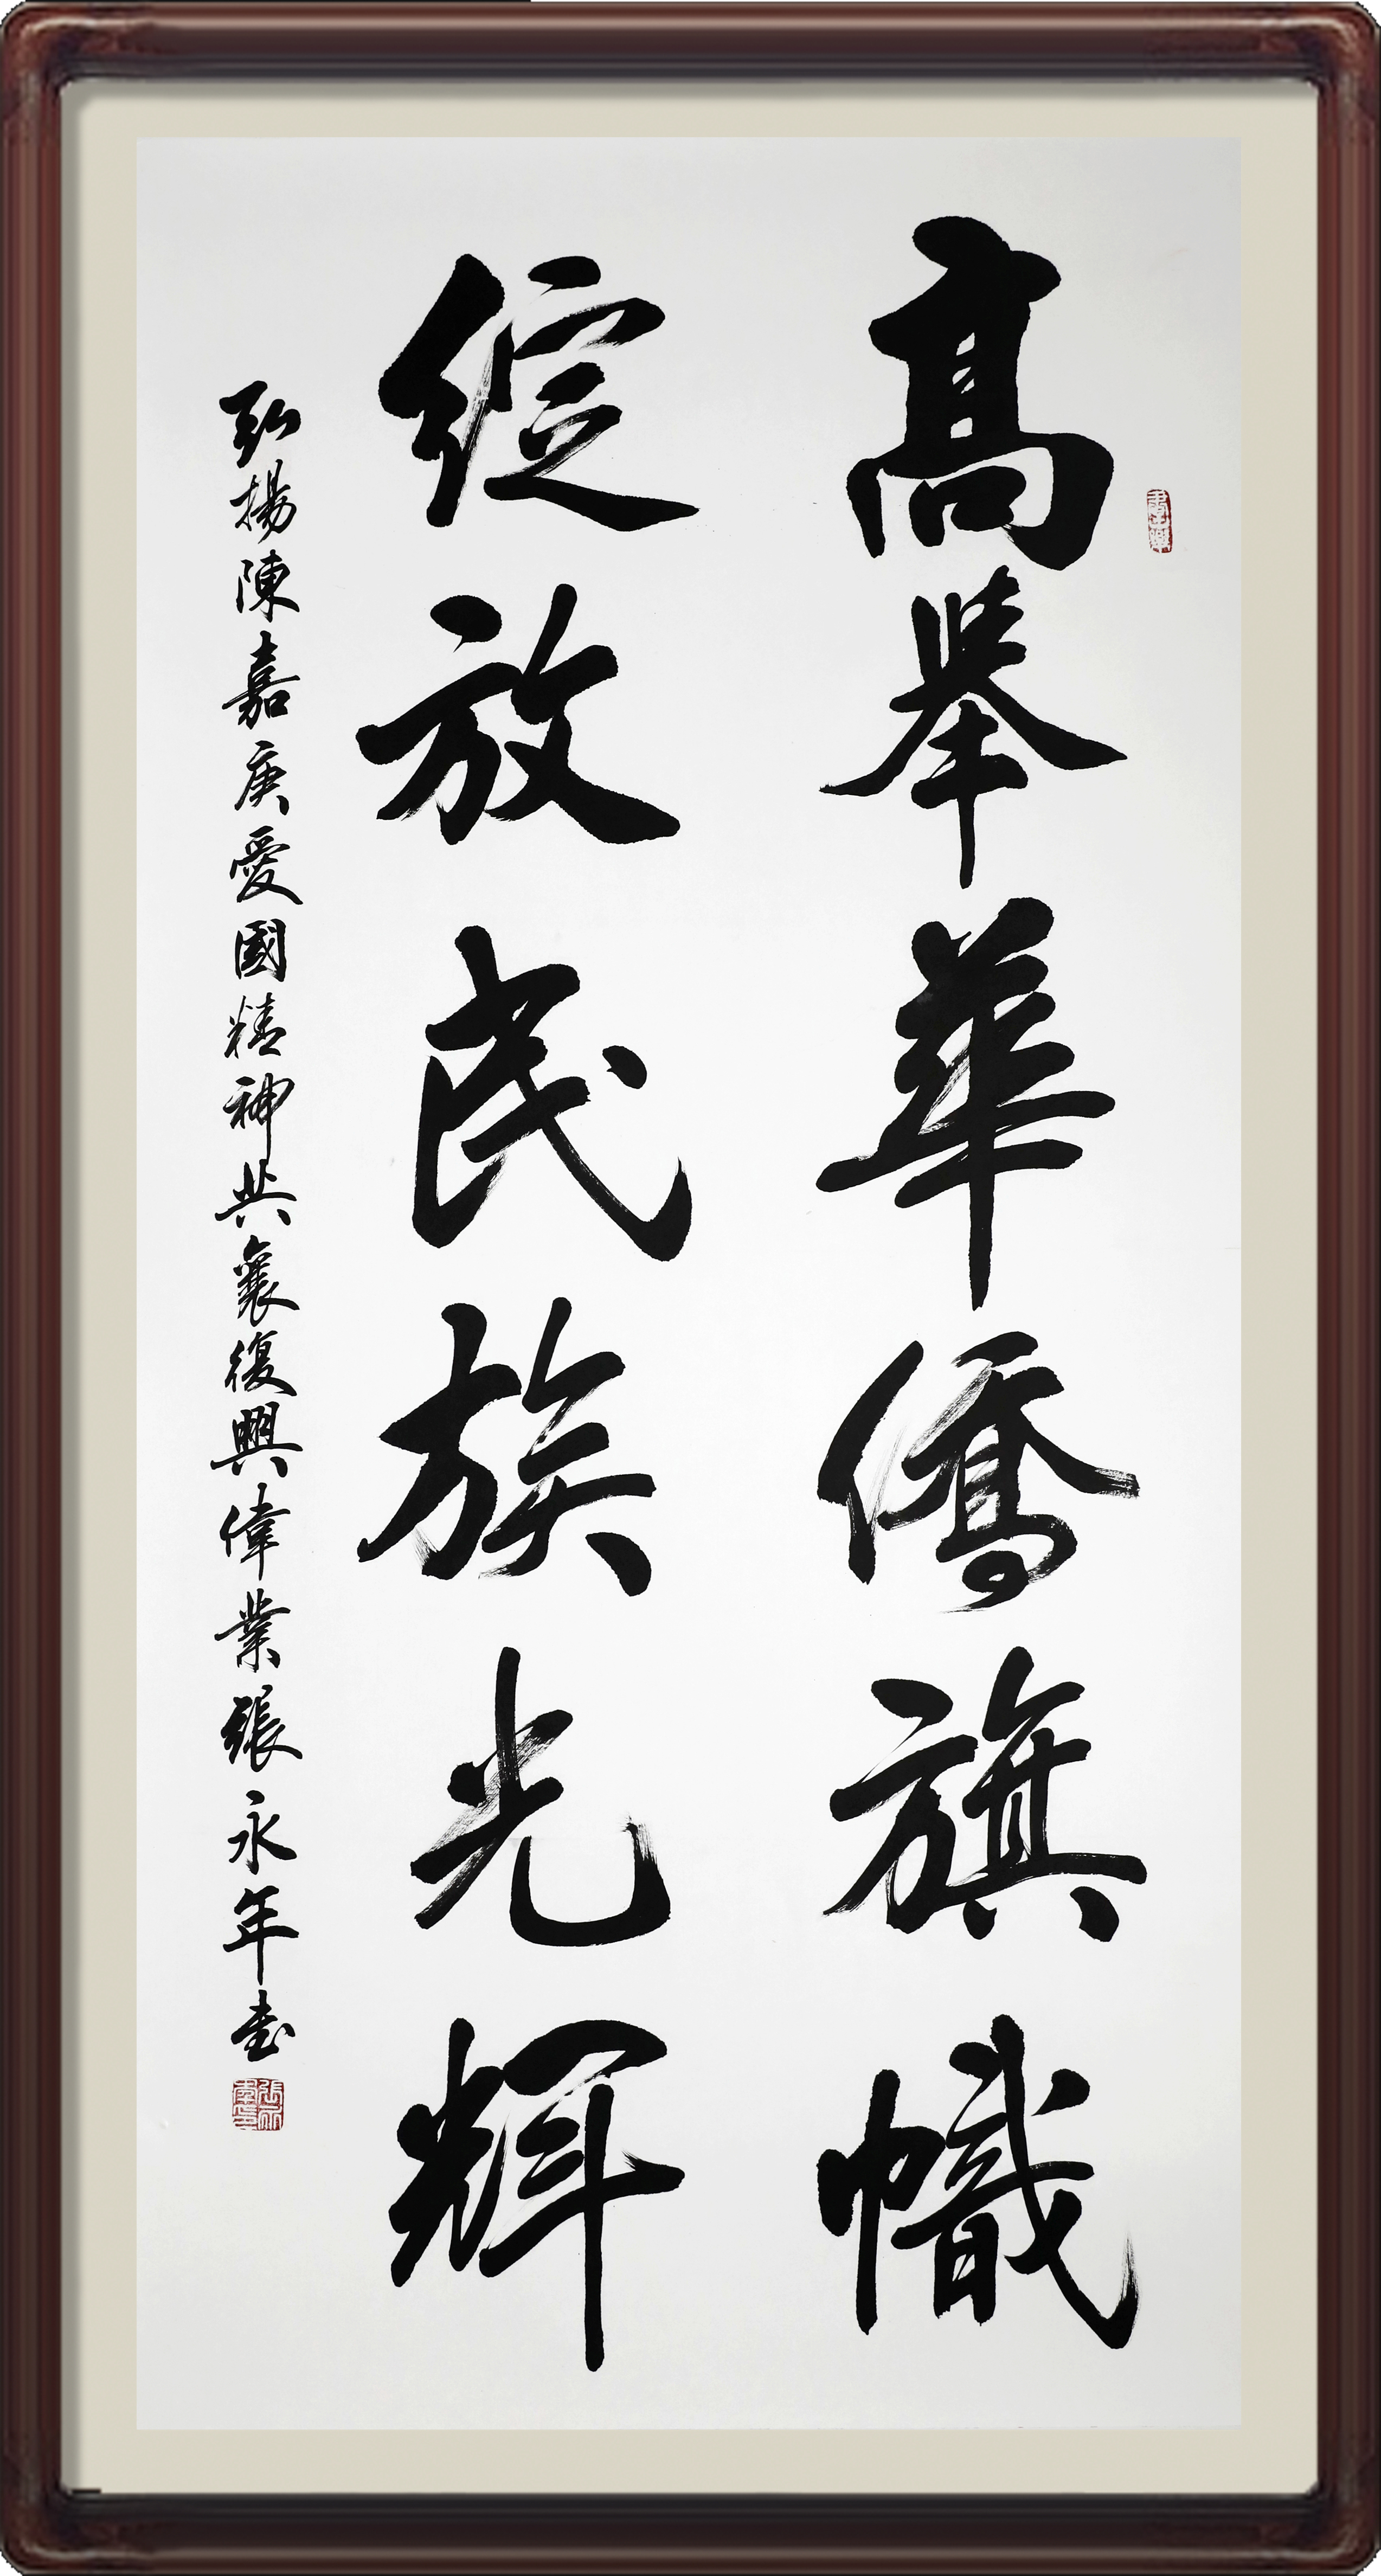 高舉華僑旗幟
綻放民族光輝
弘揚陳嘉庚愛國精神共襄復興偉業張永年书